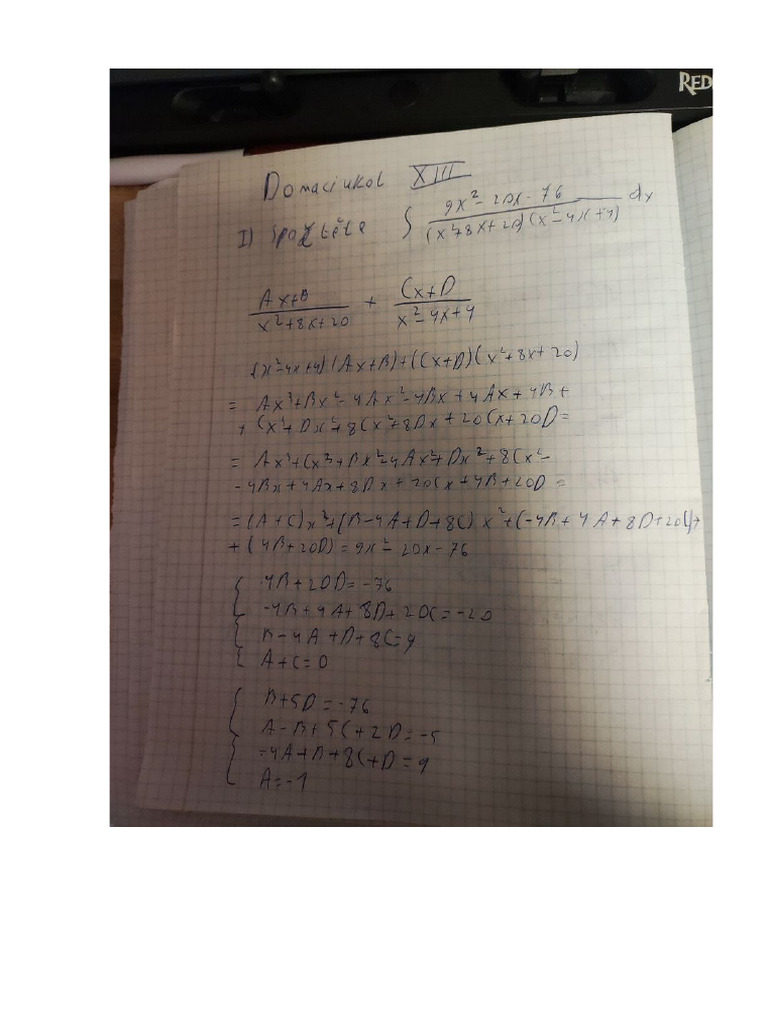 RED
Domaci ukol XIII
I) Spočtěte ∫ (9x² - 20x - 76) / ((x²+8x+20)(x²-4x+4)) dx
(Ax+B)/(x²+8x+20) + (Cx+D)/(x²-4x+4)
(x²-4x+4)(Ax+B)+(Cx+D)(x²+8x+20)
= Ax³+Bx²-4Ax²-4Bx+4Ax+4B+
+ Cx³+Dx²+8Cx²+8Dx+20Cx+20D=
= Ax³+Cx³+Bx²-4Ax²+Dx²+8Cx²-
-4Bx+4Ax+8Dx+20Cx+4B+20D=
=(A+C)x³+(B-4A+D+8C)x²+(-4B+4A+8D+20C)+
+(4B+20D)=9x²-20x-76
4B+20D=-76
-4B+4A+8D+20C=-20
B-4A+D+8C=9
A+C=0
B+5D=-76
A-B+5C+2D=-5
-4A+B+8C+D=9
A=-1